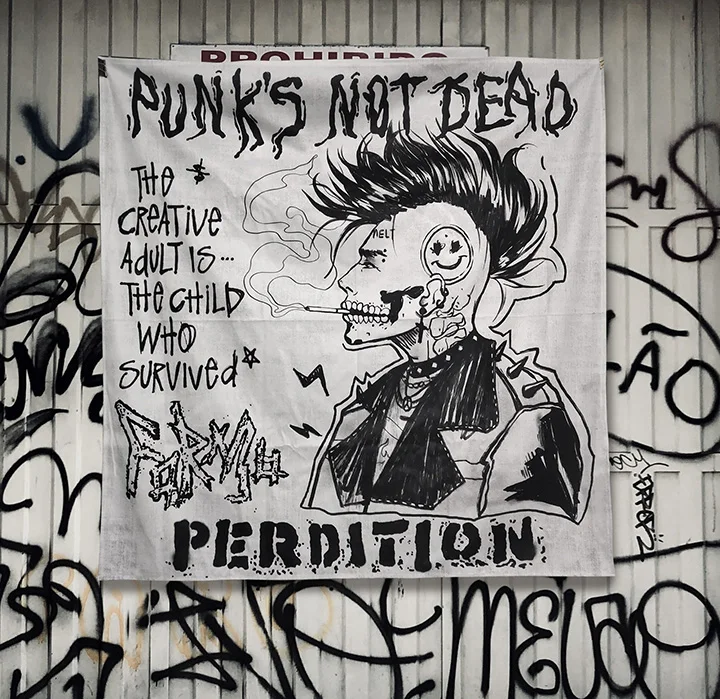 PROHIBIDO
PUNK'S NOT DEAD
THE
CREATIVE
ADULT IS...
THE CHILD
WHO
SURVIVED
MELT
FORM4
PERDITION
ÃO